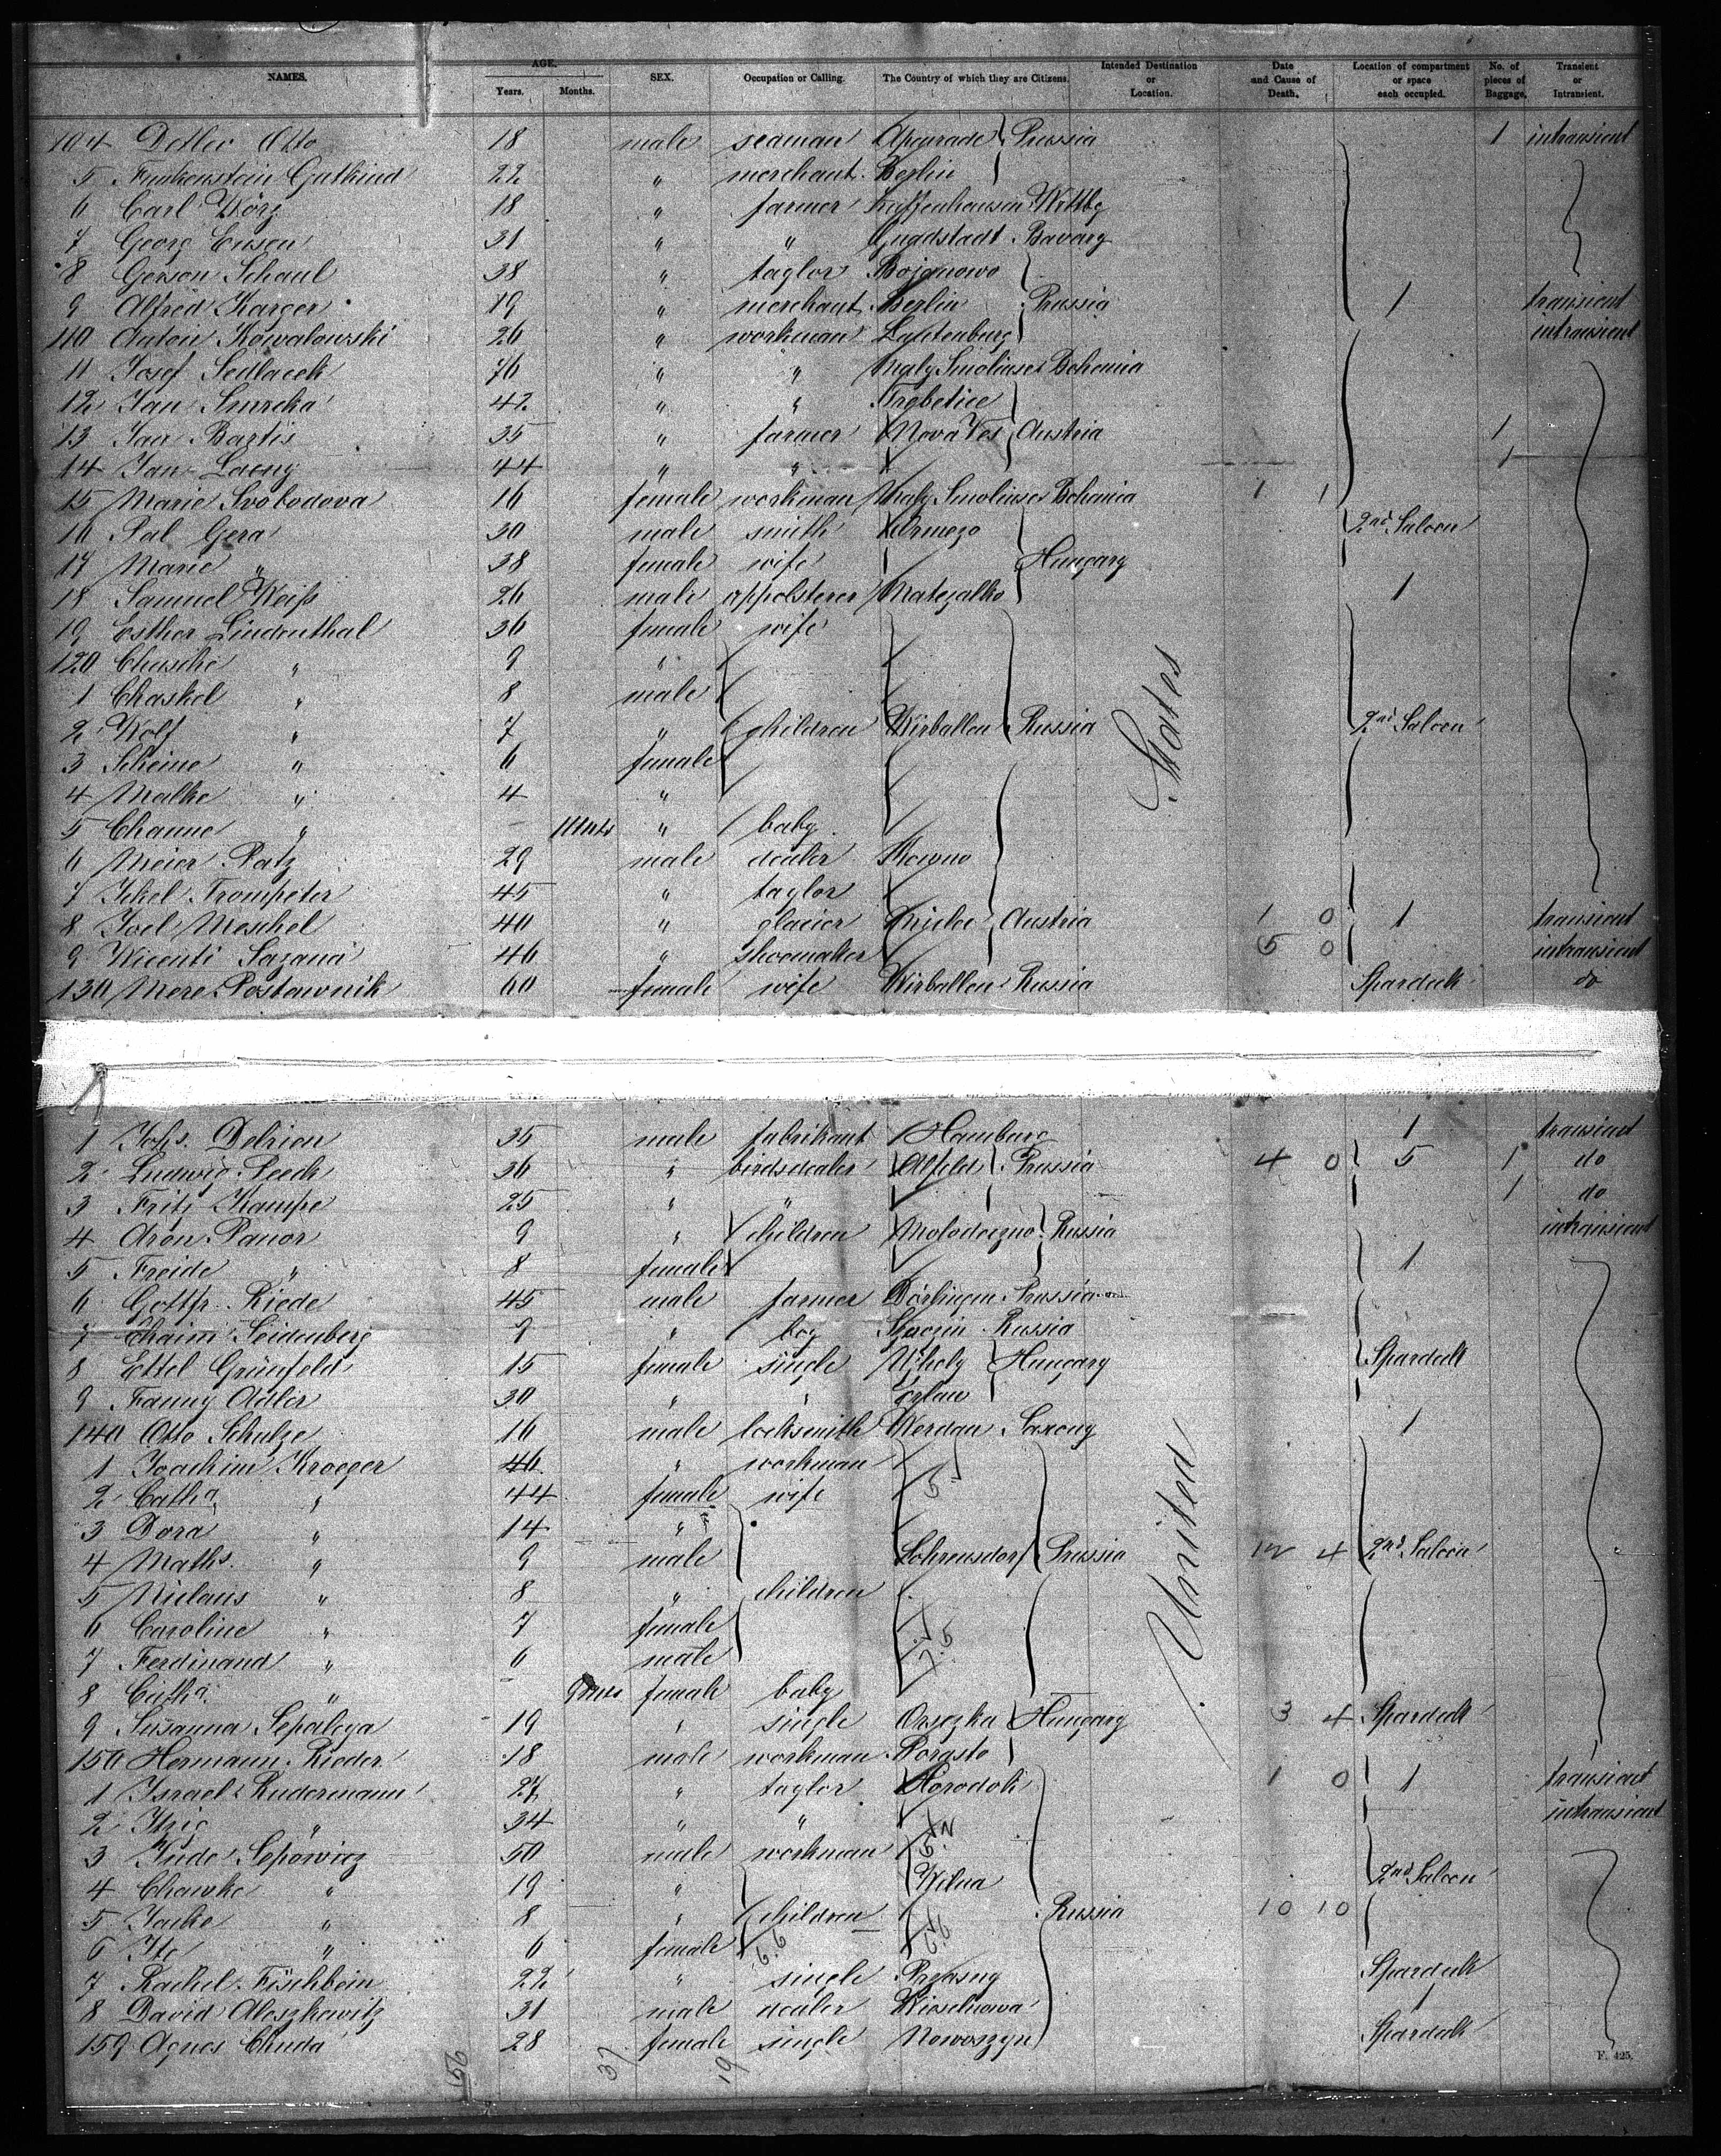 NAMES. AGE. Years. Months. SEX. Occupation or Calling. The Country of which they are Citizens. Intended Destination or Location. Date and Cause of Death. Location of compartment or space each occupied. No. of pieces of Baggage. Transient or Intransient.
104 Detlev Otto 18 male seaman Apenrade Prussia 1 intransient
5 Funkenstein Gutkind 22 " merchant Berlin
6 Carl Wörz 18 " farmer Wttbg
7 Georg Ensen 31 " " Gnadstadt Bavarg
8 Gerson Schaul 38 " taylor Bojanowo
9 Alfred Karger 19 " merchant Berlin Prussia 1 transient
110 Anton Kowalowski 26 " workman Lautenburg intransient
11 Josef Sedlacek 76 " " Maly Bohemia
12 Jan Smrcka 42 " " Trebetice
13 Jan Bartis 35 " farmer Nova Ves Austria 1
14 Jan Lacny 44 " " 1
15 Marie Svobodova 16 female workman Maly Bohemia 1 1
16 Pal Gera 30 male smith Örmezo 2nd Saloon
17 Marie " 38 female wife Hungary
18 Samuel Weiß 26 male appolsterer Mateszalka 1
19 Esther Lindenthal 36 female wife
120 Chaschi " 9 "
1 Chaskel " 8 male
2 Wolf " 7 " children Wirballen Russia 2nd Saloon
3 Scheine " 6 female
4 Malke " 4 "
5 Channe " - 11 mts " baby
6 Meier Patz 29 male dealer Kowno
7 Ickel Trompeter 45 " taylor
8 Joel Meschel 40 " glacier Mielec Austria 1 0 1 transient
9 Wicenti Sazana 46 " shoemaker 5 0 intransient
130 Mere Postawnik 60 female wife Wirballen Russia Spardeck do
1 Johs. Delrien 35 male fabrikant Hamburg 1 transient
2 Ludwig Reech 36 " birdsdealer Alfeld Prussia 4 0 5 1 do
3 Fritz Kampe 25 " " 1 do
4 Aron Panor 9 " children Molodeczno Russia intransient
5 Freide " 8 female 1
6 Gottfr. Riede 45 male farmer Dörlingen Prussia
7 Chaim Seidenberg 9 " boy Russia
8 Ettel Grünfeld 15 female single Ujhely Hungary Spardeck
9 Fanny Adler 30 " "
140 Otto Schulze 16 male locksmith Werdau Saxony 1
1 Joachim Kroeger 46 " workman
2 Catha " 44 female wife
3 Dora " 14 "
4 Maths. " 9 male Lohrensdorf Prussia 12 4 2nd Saloon
5 Niclaus " 8 " children
6 Caroline " 7 female
7 Ferdinand " 6 male
8 Catha " - 9 mts female baby
9 Susanna Sepaleya 19 " single Hungary 3 4 Spardeck
150 Hermann Rieder 18 male workman
1 Israel Rudermann 27 " taylor Horodok 1 0 1 transient
2 Itzig " 34 " " intransient
3 Jude Lepowicz 50 male workman
4 Chawke " 19 " Wilna 2nd Saloon
5 Jacke " 8 " children Russia 10 10
6 Ite " 6 female
7 Rachel Fischbein 22 " single Przasny Spardeck
8 David Aleszkowitz 31 male dealer
159 Agnes Chuda 28 female single Nowoszyn Spardeck
United States
37
19
F. 425.